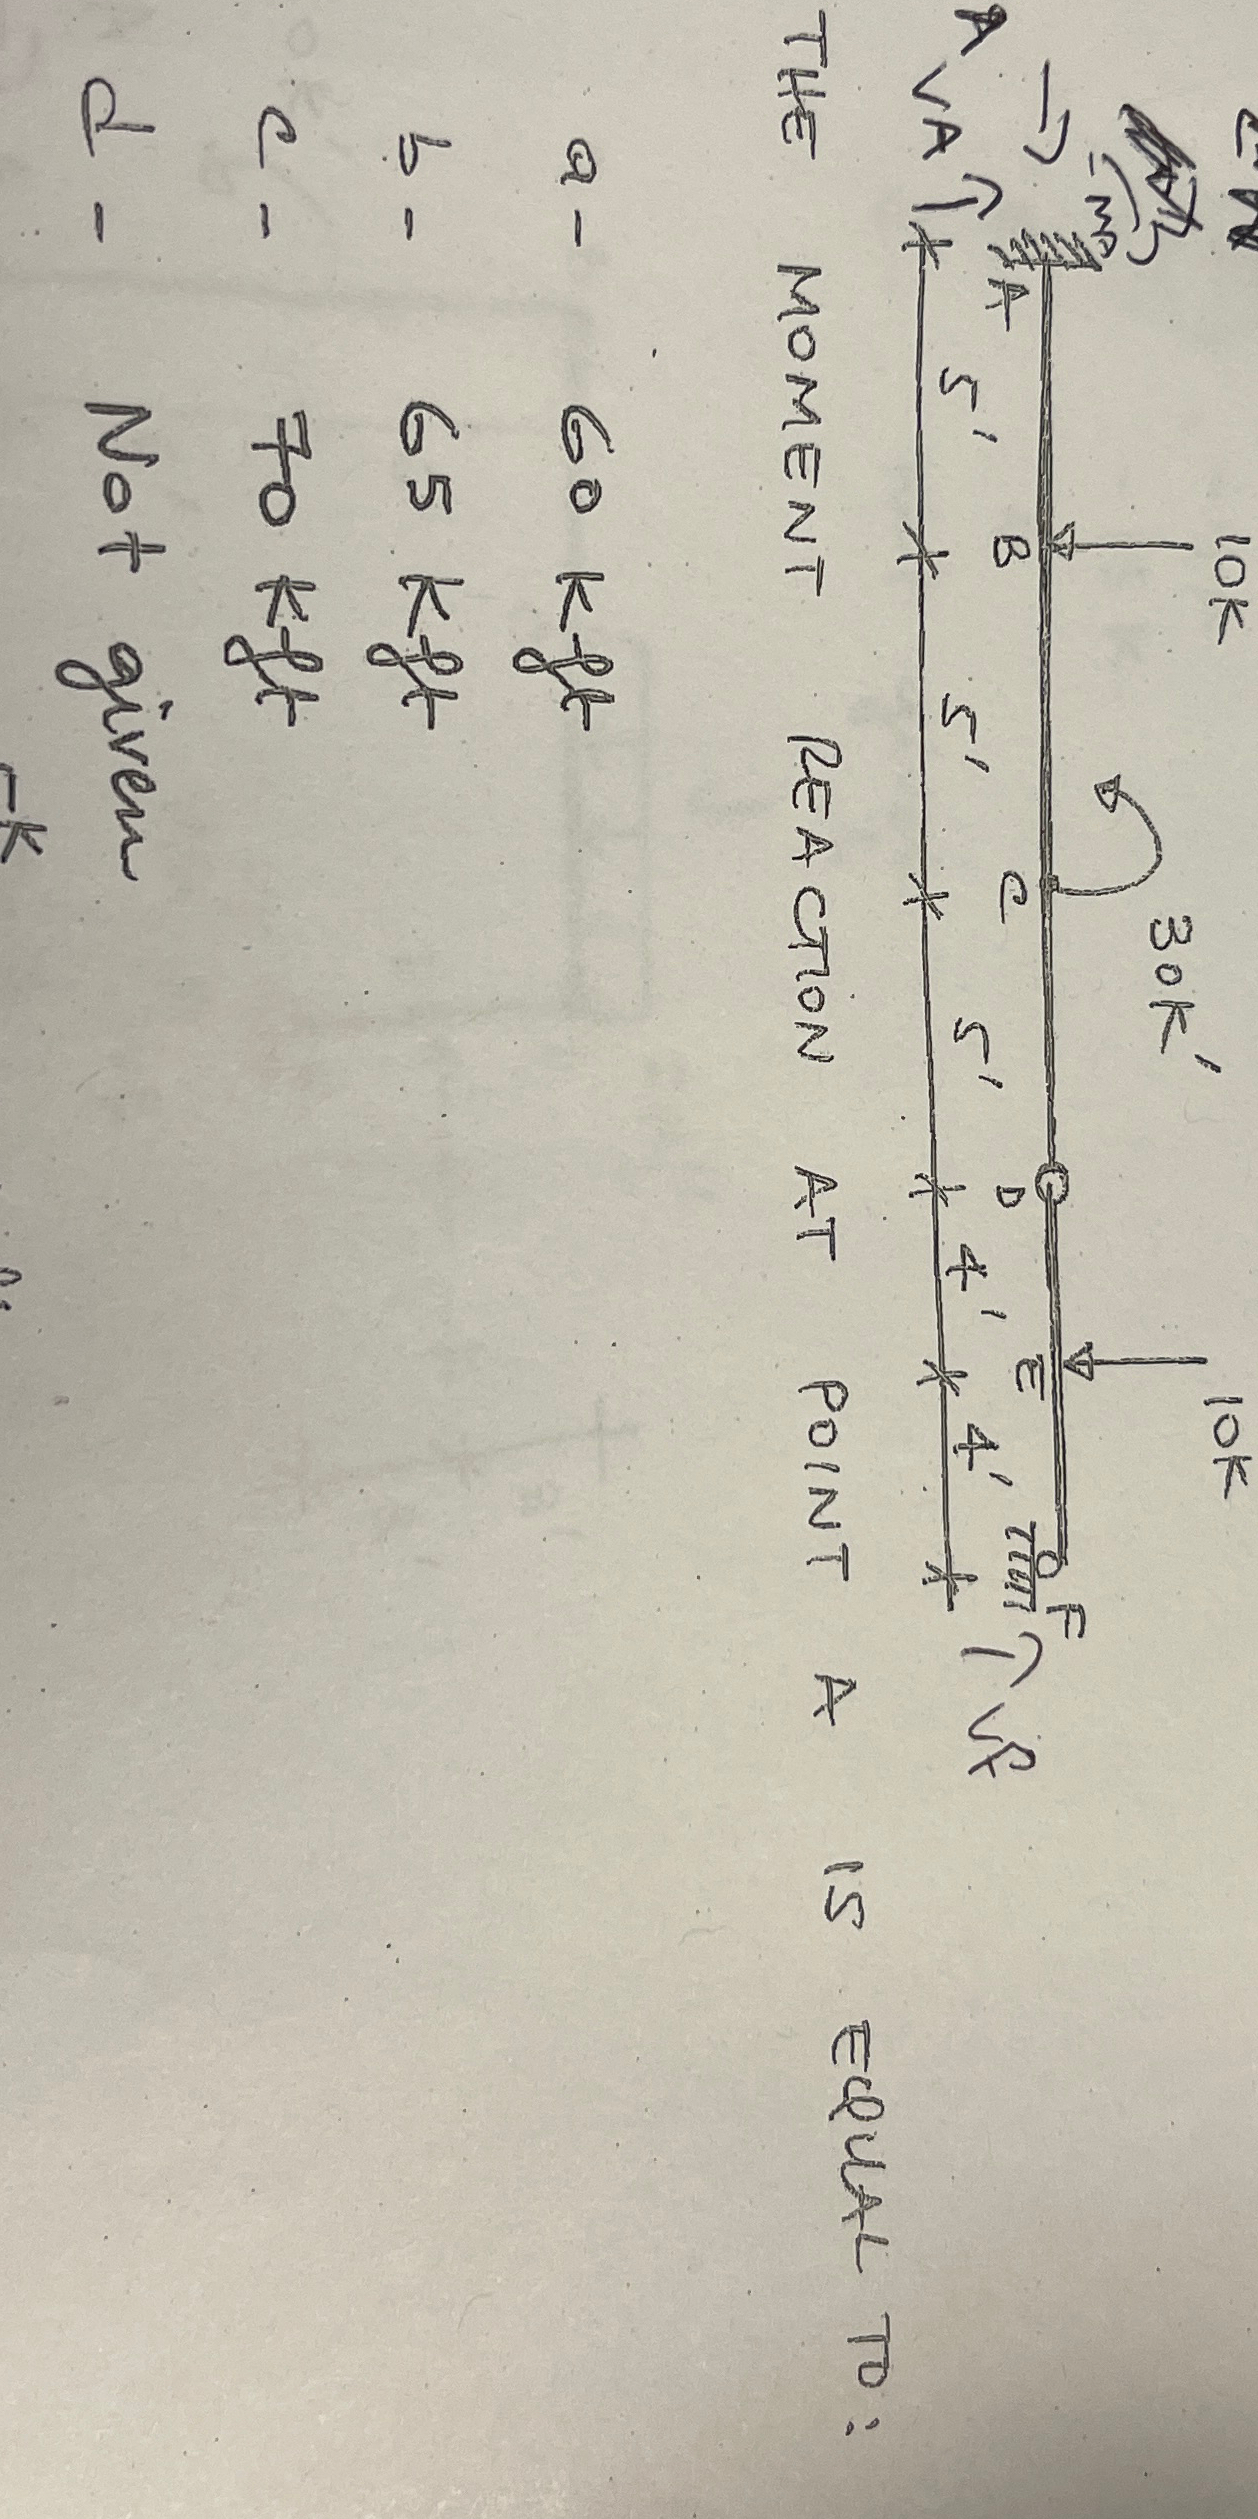 10K 30K' 10K
MA
A B C D E F
VA VF
5' 5' 5' 4' 4'
THE MOMENT REACTION AT POINT A IS EQUAL TO:
a - 60 K-ft
b - 65 K-ft
c - 70 K-ft
d - Not given